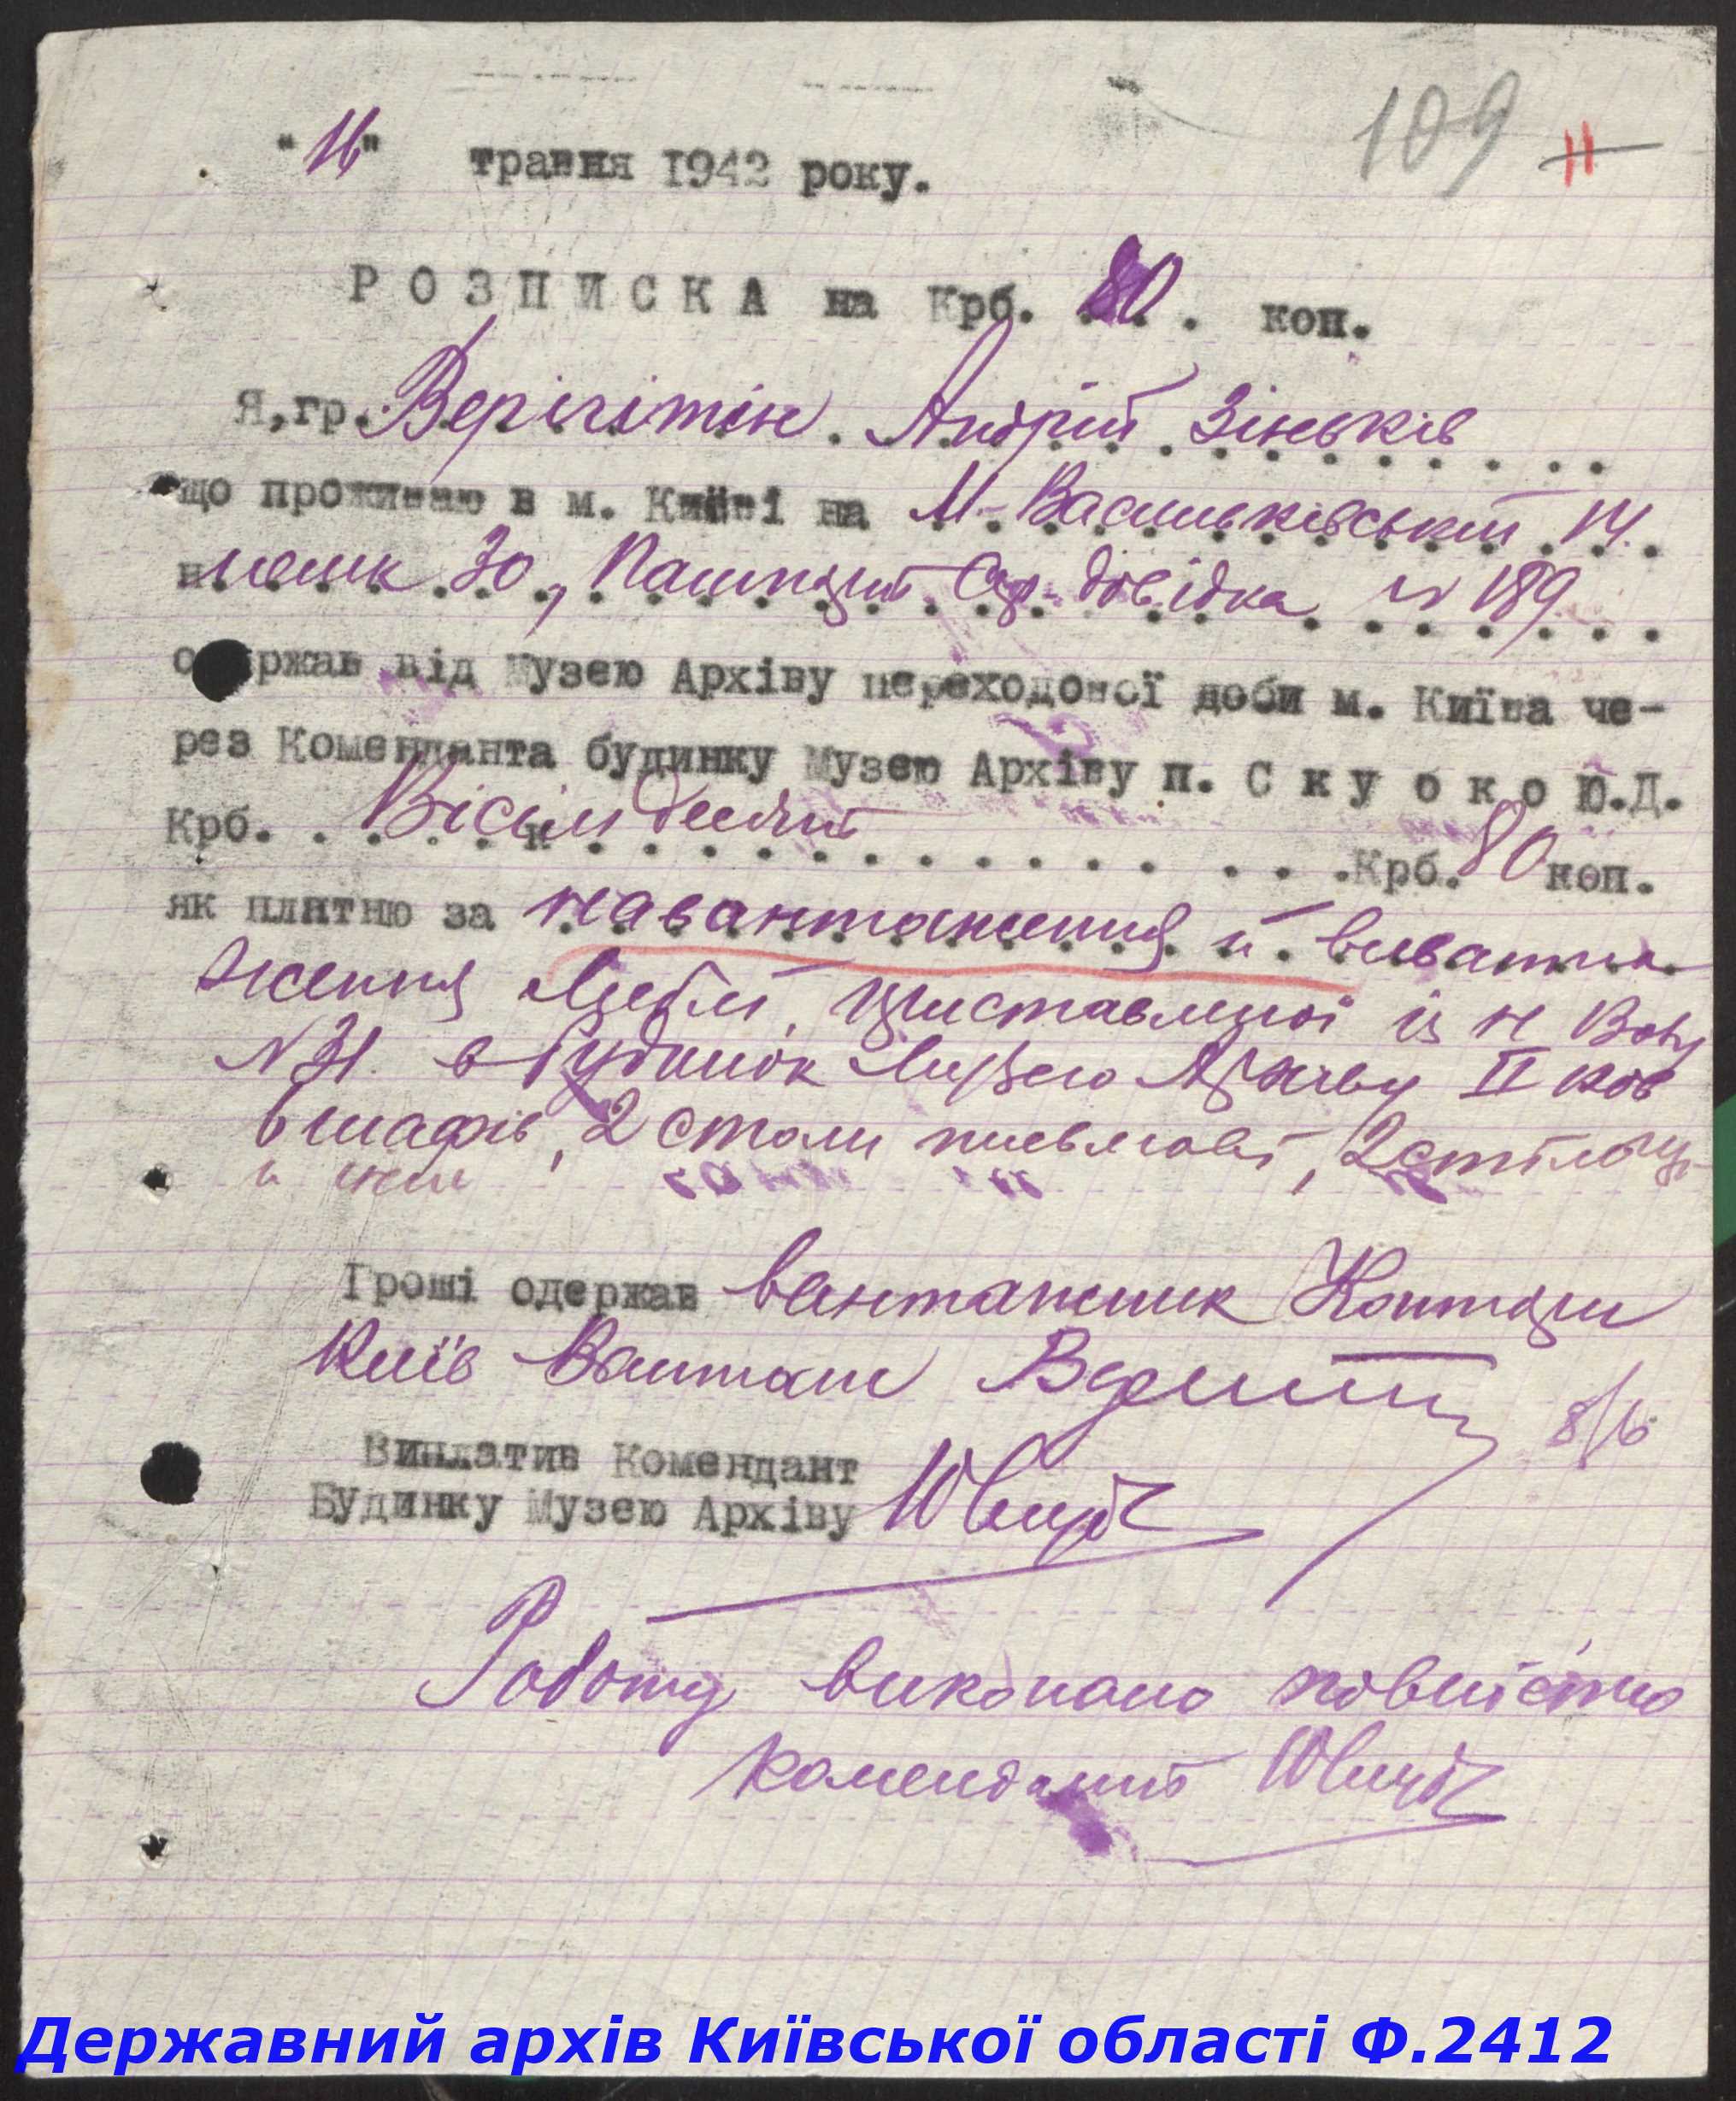 109 11
"16" травня 1942 року.
РОЗПИСКА на Крб. 80 . коп.
Я,гр. Верігітін Андрій Зіньків
що проживаю в м. Київі на М-Васильківській 14.
помк 30, Пашпорт довідка № 189
одержав від Музею Архіву переходової доби м. Київа че-
рез Коменданта будинку Музею Архіву п. Скуоко Ю.Д.
Крб. Вісімдесят Крб. 80 коп.
як платню за навантаження й виванта
ження меблі, приставленої із
№ 31. в будинок Музею Архіву II пов
6 шафів, 2 столи письмові, 2 стільці
Гроші одержав вантажник Контори
Київ Вантаж
8/6
Виплатив Комендант
Будинку Музею Архіву
Роботу виконано повністю
комендант
Державний архів Київської області Ф.2412